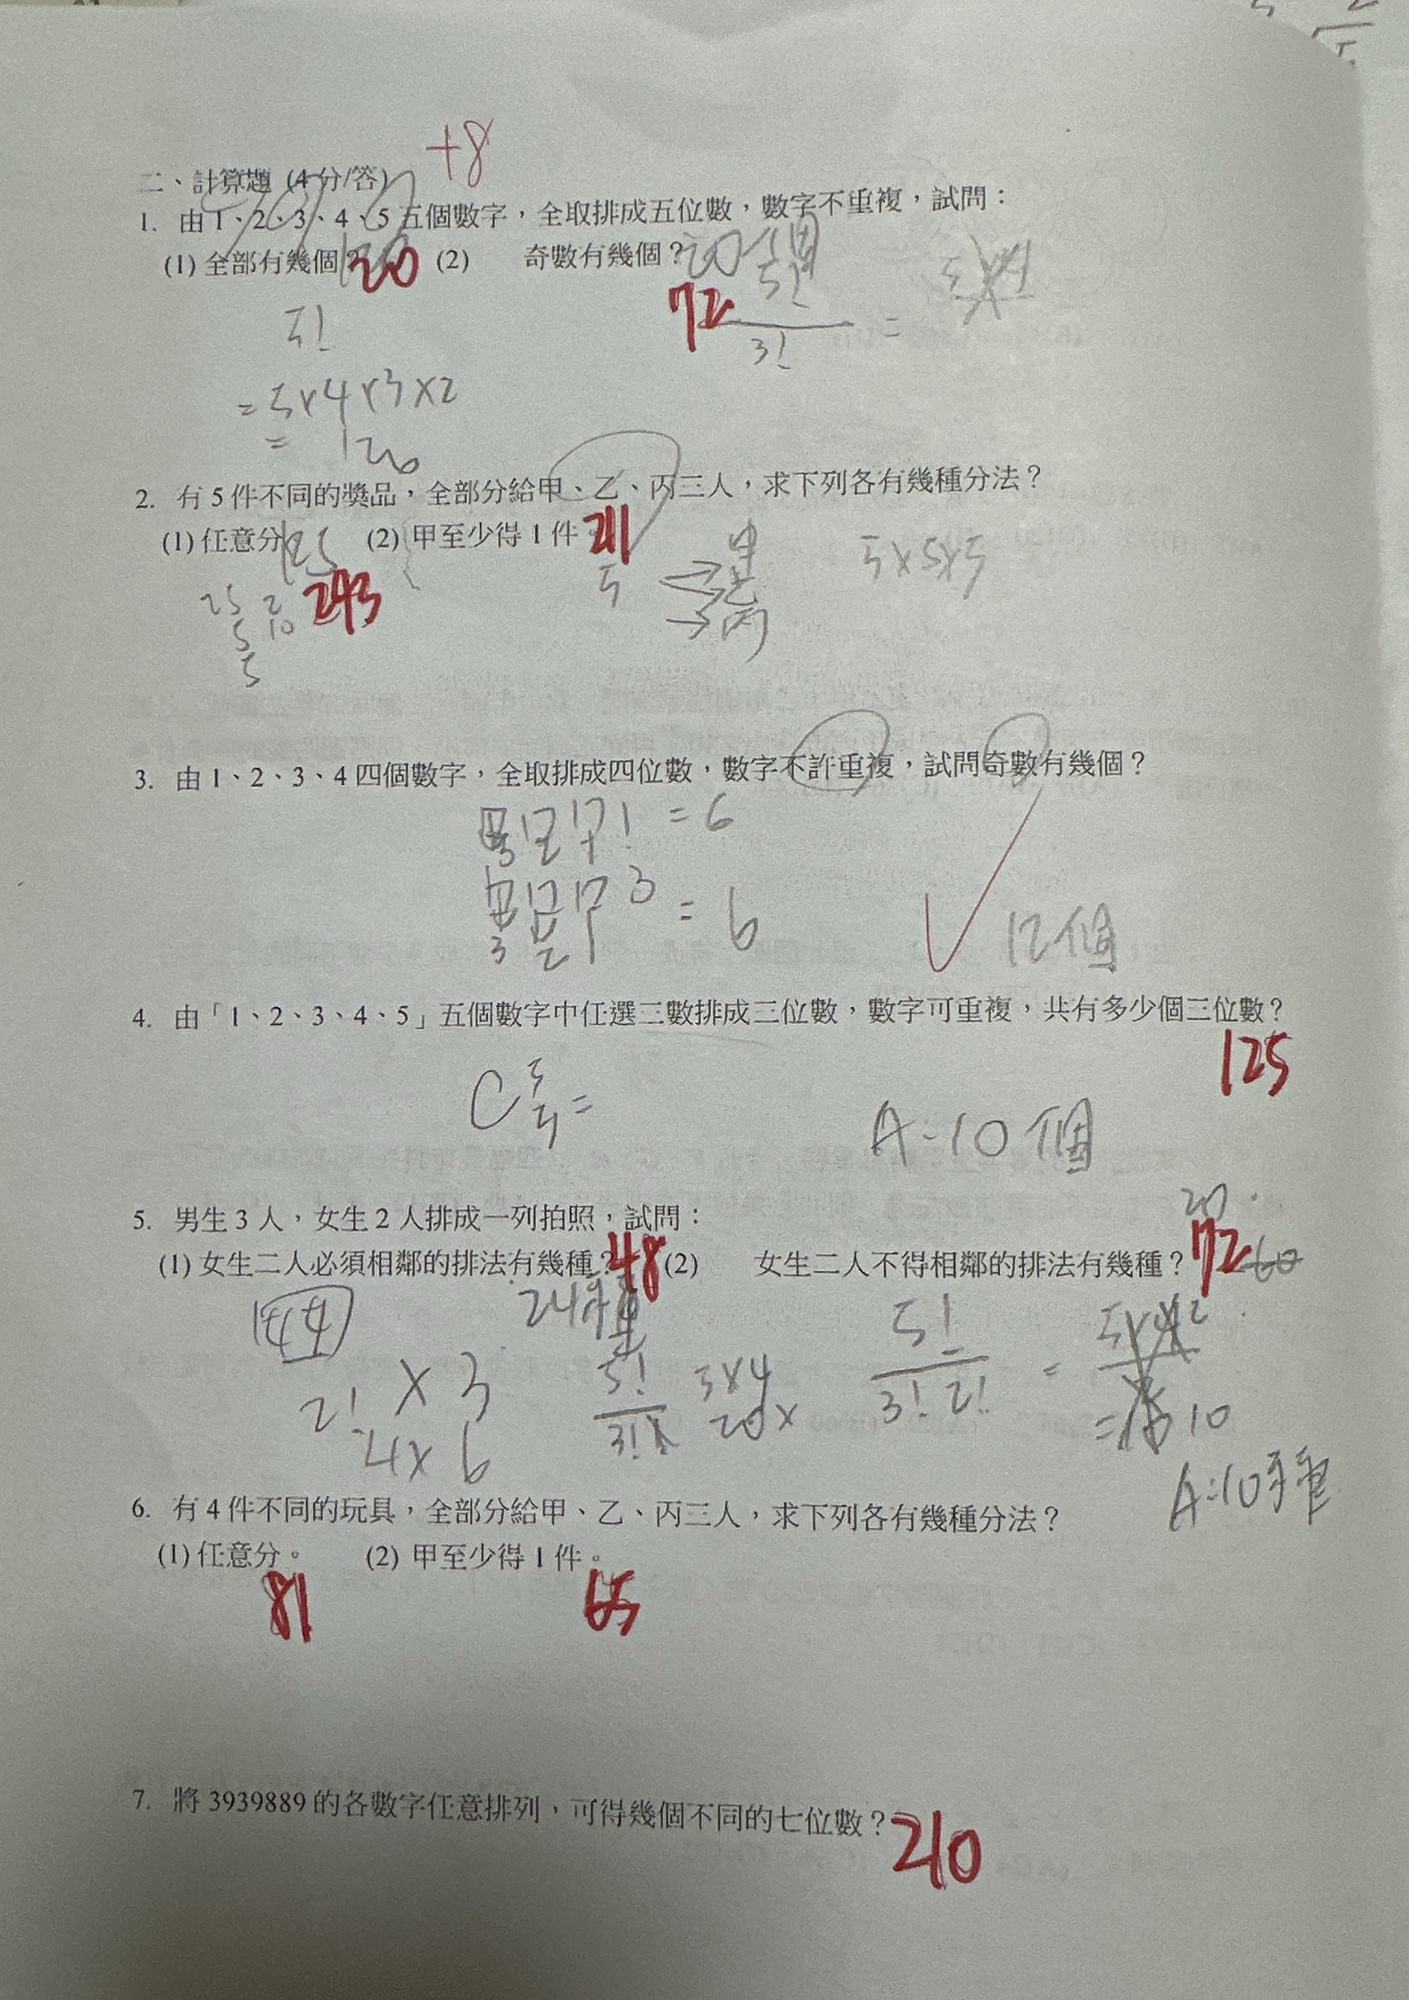 +8
二、計算題 (4分/答)
1. 由1、2、3、4、5五個數字，全取排成五位數，數字不重複，試問：
(1) 全部有幾個？ 120 (2) 奇數有幾個？ 20個
72
5!
3!
=
5!
=5×4×3×2
= 120
2. 有5件不同的獎品，全部分給甲、乙、丙三人，求下列各有幾種分法？
(1) 任意分 125 (2) 甲至少得1件。 211
243
25 2
5 10
5
5 → 甲
乙
→ 丙
5×5×5
3. 由1、2、3、4四個數字，全取排成四位數，數字不許重複，試問奇數有幾個？
1 = 6
3 = 6
3 2 1
12個
4. 由「1、2、3、4、5」五個數字中任選三數排成三位數，數字可重複，共有多少個三位數？
125
C 5 3 =
A:10個
5. 男生3人，女生2人排成一列拍照，試問：
20
(1) 女生二人必須相鄰的排法有幾種？ 48 (2) 女生二人不得相鄰的排法有幾種？ 72 60
24種
2! × 3
4×6
5!
3!
5×4
20×
5!
3! 2!
=
= 10
A:10種
6. 有4件不同的玩具，全部分給甲、乙、丙三人，求下列各有幾種分法？
(1) 任意分。 (2) 甲至少得1件。
81 65
7. 將3939889的各數字任意排列，可得幾個不同的七位數？ 210